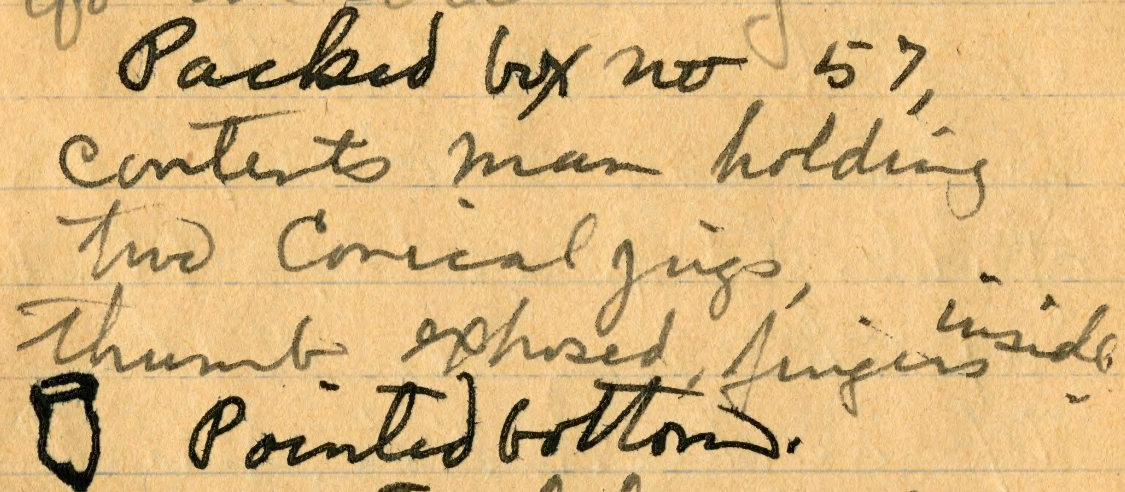 Packed box no 57,
contents man holding
two Conical jugs,
thumb exposed, fingers inside
Pointed bottom.